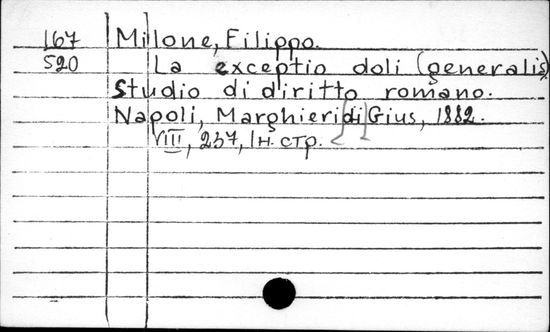 167 Milone, Filippo.
520 La exceptio doli (generalis).
Studio di diritto romano.
Napoli, Marghieri di Gius, 1882.
VIII, 237, 1 н. стр.